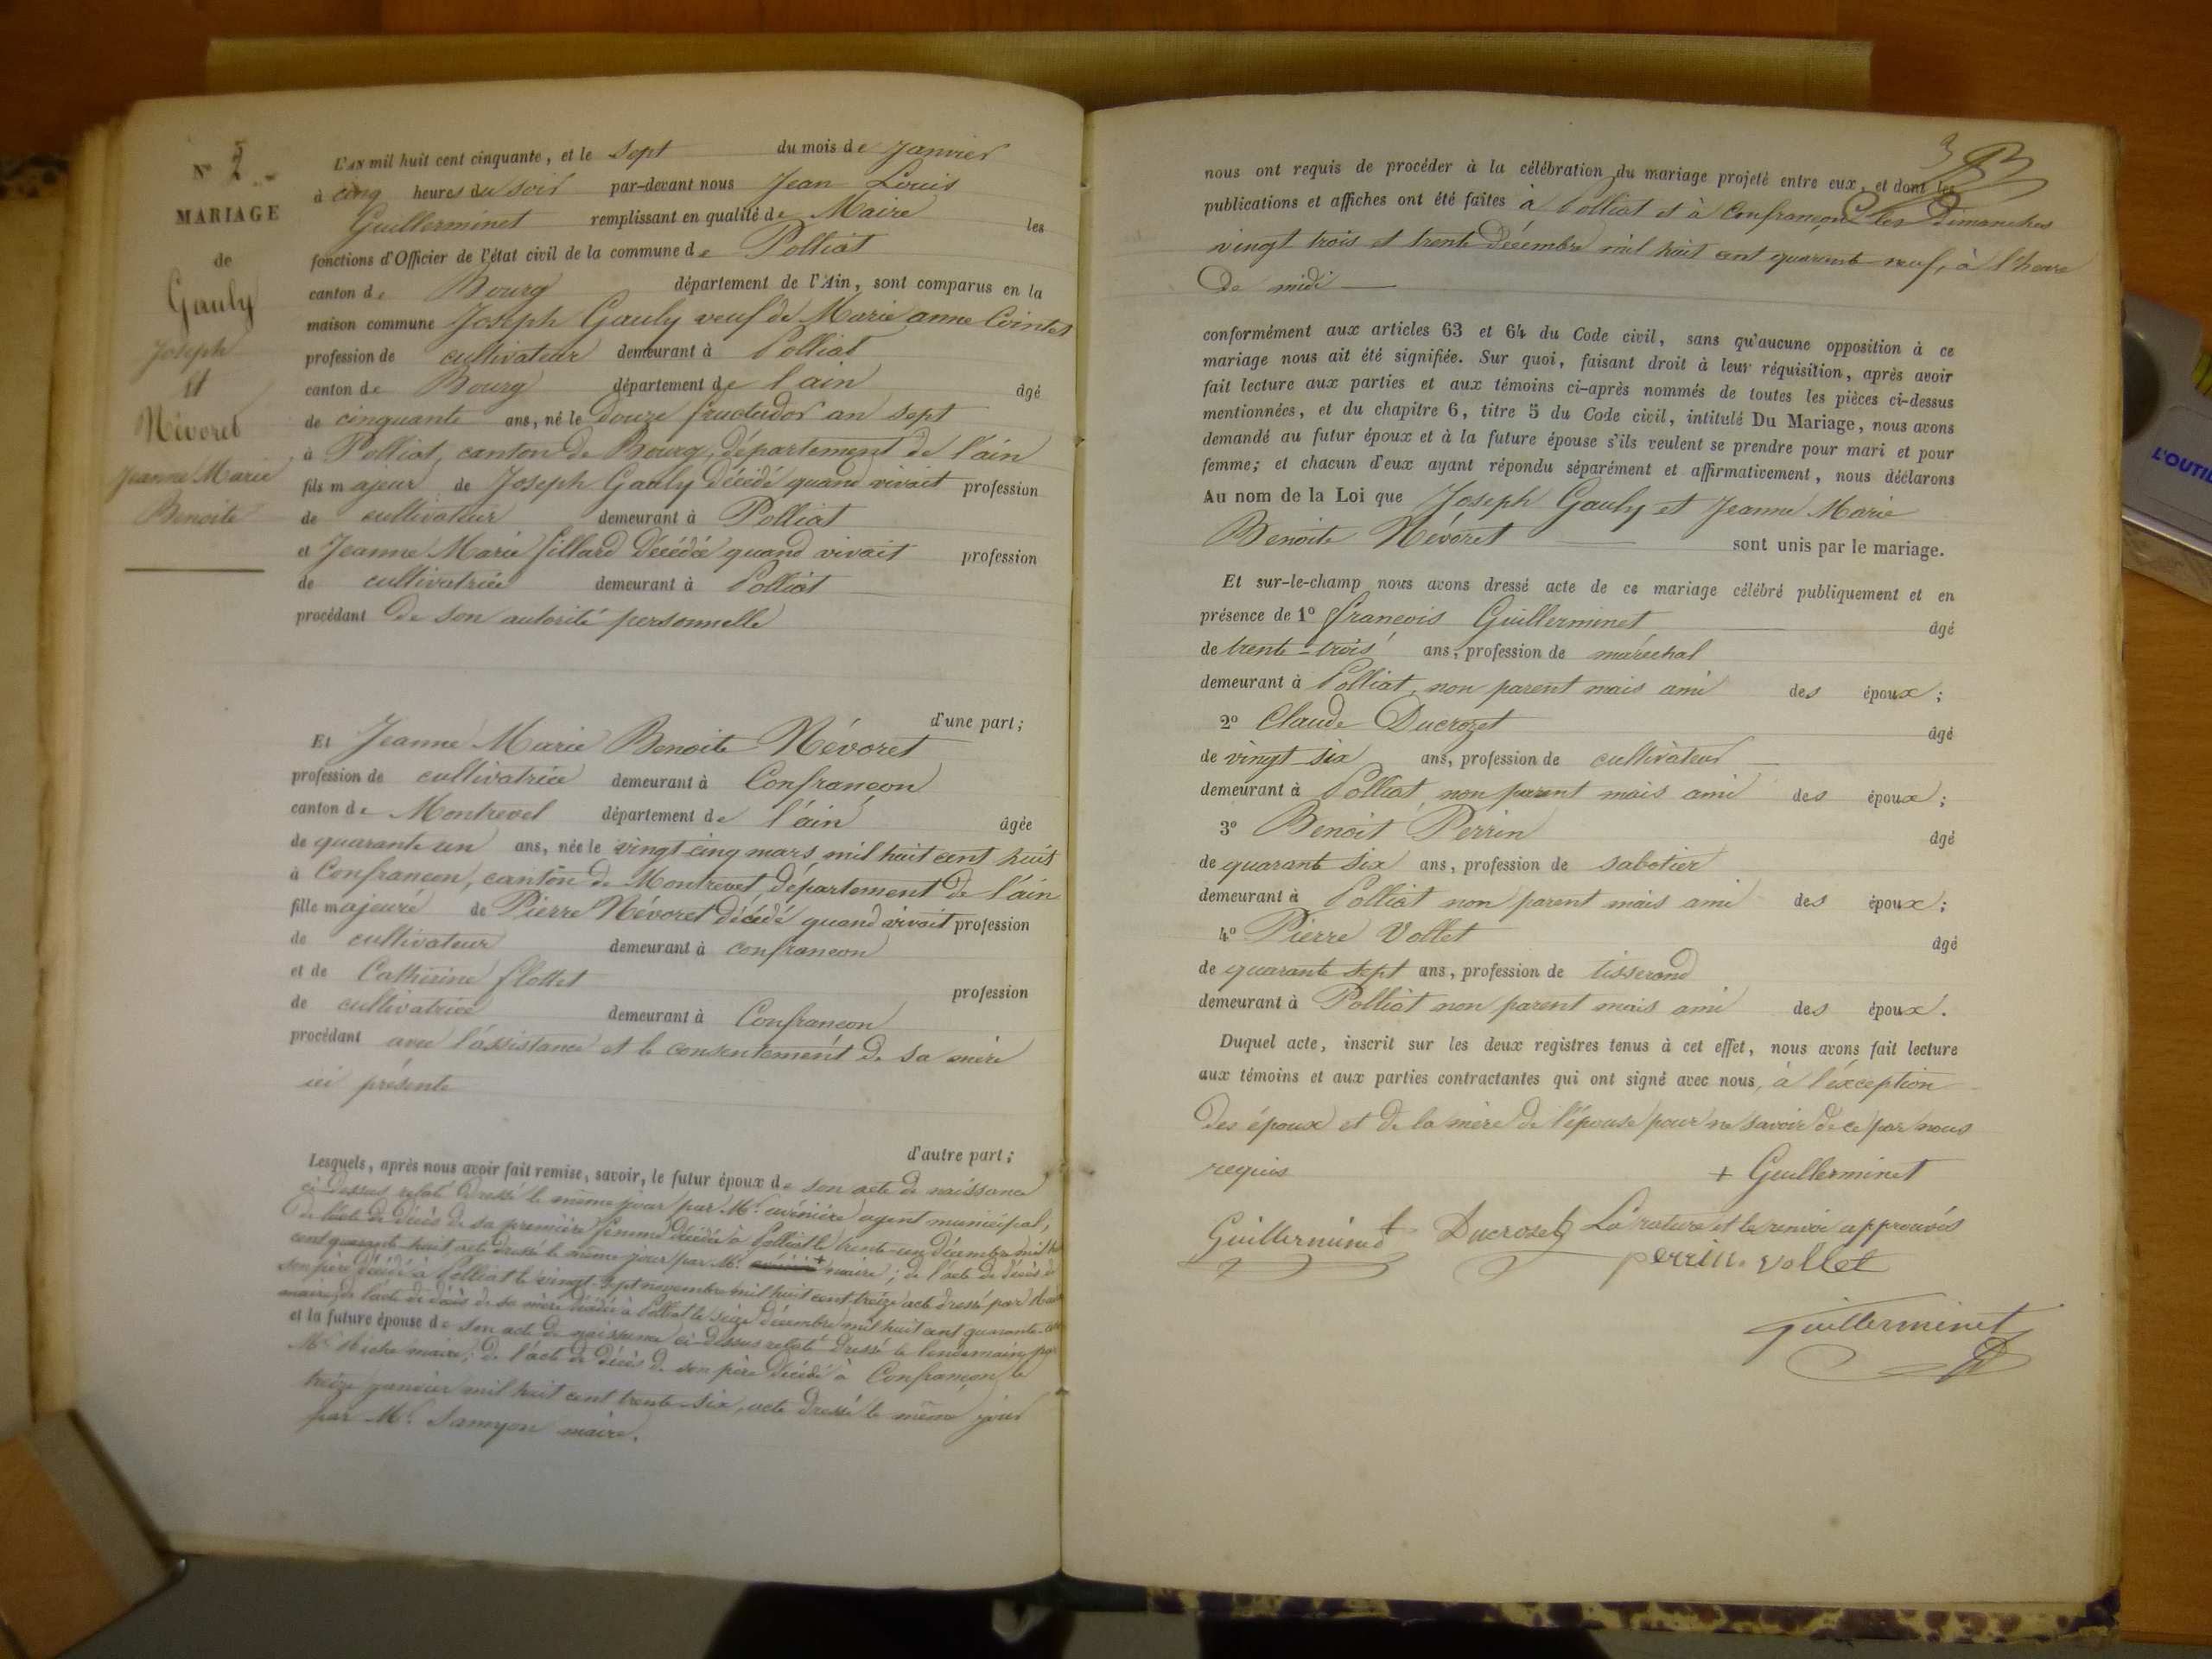 N° 2
MARIAGE
de
Gauly
Joseph
et
Névoret
Jeanne Marie
Benoite
L'AN mil huit cent cinquante, et le sept du mois de Janvier
à cinq heures du soir par-devant nous Jean Louis
Guillerminet remplissant en qualité de Maire les
fonctions d'Officier de l'état civil de la commune de Polliat
canton de Bourg département de l'Ain, sont comparus en la
maison commune Joseph Gauly veuf de Marie anne Cointet
profession de cultivateur demeurant à Polliat
canton de Bourg département de l'ain âgé
de cinquante ans, né le douze fructidor an sept
à Polliat, canton de Bourg, département de l'ain
fils majeur de Joseph Gauly décédé quand vivait profession
de cultivateur demeurant à Polliat
et Jeanne Marie fillard décédée quand vivait profession
de cultivatrice demeurant à Polliat
procédant de son autorité personnelle
d'une part;
Et Jeanne Marie Benoite Névoret
profession de cultivatrice demeurant à Confrançon
canton de Montrevel département de l'ain âgée
de quarante un ans, née le vingt cinq mars mil huit cent huit
à Confrancon, canton de Montrevel, département de l'ain
fille majeure de Pierre Névoret décédé quand vivait profession
de cultivateur demeurant à confrancon
et de Catherine flottet profession
de cultivatrice demeurant à Confrancon
procédant avec l'assistance et le consentement de sa mère
ici présente
d'autre part;
Lesquels, après nous avoir fait remise, savoir, le futur époux de son acte de naissance
ci dessus relaté dressé le même jour par Mr. agent municipal,
de l'acte de décès de sa première femme décédée à Polliat le trente un décembre mil
cent quarante huit acte dressé le même jour par Mr. + maire; de l'acte de décès de
son père décédé à Polliat le vingt sept novembre mil huit cent treize acte dressé par
maire, de l'acte de décès de sa mère décédée à Polliat le seize décembre mil huit cent quarante
et la future épouse de son acte de naissance ci-dessus relaté dressé le lendemain par
Mr. Miche maire; de l'acte de décès de son père décédé à Confrançon le
treize janvier mil huit cent trente six, acte dressé le même jour
par Mr. maire.
3
nous ont requis de procéder à la célébration du mariage projeté entre eux, et dont les
publications et affiches ont été faites à Polliat et à Confrançon les Dimanches
vingt trois et trente Décembre mil huit cent quarante neuf, à l'heure
de midi
conformément aux articles 63 et 64 du Code civil, sans qu'aucune opposition à ce
mariage nous ait été signifiée. Sur quoi, faisant droit à leur réquisition, après avoir
fait lecture aux parties et aux témoins ci-après nommés de toutes les pièces ci-dessus
mentionnées, et du chapitre 6, titre 5 du Code civil, intitulé Du Mariage, nous avons
demandé au futur époux et à la future épouse s'ils veulent se prendre pour mari et pour
femme; et chacun d'eux ayant répondu séparément et affirmativement, nous déclarons
Au nom de la Loi que Joseph Gauly et Jeanne Marie
Benoite Névoret sont unis par le mariage.
Et sur-le-champ nous avons dressé acte de ce mariage célébré publiquement et en
présence de 1° francois Guillerminet âgé
de trente-trois ans, profession de maréchal
demeurant à Polliat, non parent mais ami des époux;
2° Claude Ducrozet âgé
de vingt six ans, profession de cultivateur
demeurant à Polliat, non parent mais ami des époux;
3° Benoit Perrin âgé
de quarante six ans, profession de sabotier
demeurant à Polliat non parent mais ami des époux;
4° Pierre Vollet âgé
de quarante sept ans, profession de tisserand
demeurant à Polliat non parent mais ami des époux.
Duquel acte, inscrit sur les deux registres tenus à cet effet, nous avons fait lecture
aux témoins et aux parties contractantes qui ont signé avec nous, à l'éxception
des époux et de la mère de l'épouse pour ne savoir de ce par nous
requis + Guillerminet
Guillerminet Ducrozet La rature et le renvoi approuvés
perrin. vollet
Guillerminet
L'OUTIL